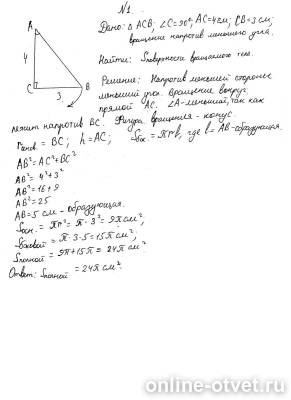 N1.
A
4
C
3
B
Дано: △ ACB, ∠C=90°, AC=4см, CB=3см;
вращение напротив меньшего угла.
Найти: Sповерхности вращаемого тела.
Решение: Напротив меньшей стороны
меньший угол. Вращение вокруг
прямой AC. ∠A-меньший, так как
лежит напротив BC. Фигура вращения - конус.
rоснов. = BC; h=AC; Sбок. = πrl, где l=AB-образующая.
AB²=AC²+BC²
AB²=4²+3²
AB²=16+9
AB²=25
AB=5 см - образующая.
Sосн. = πr²= π·3²= 9π см²;
Sбоковой = π·3·5=15π см²;
Sполной = 9π+15π = 24π см².
Ответ: Sполной = 24π см².
online-otvet.ru